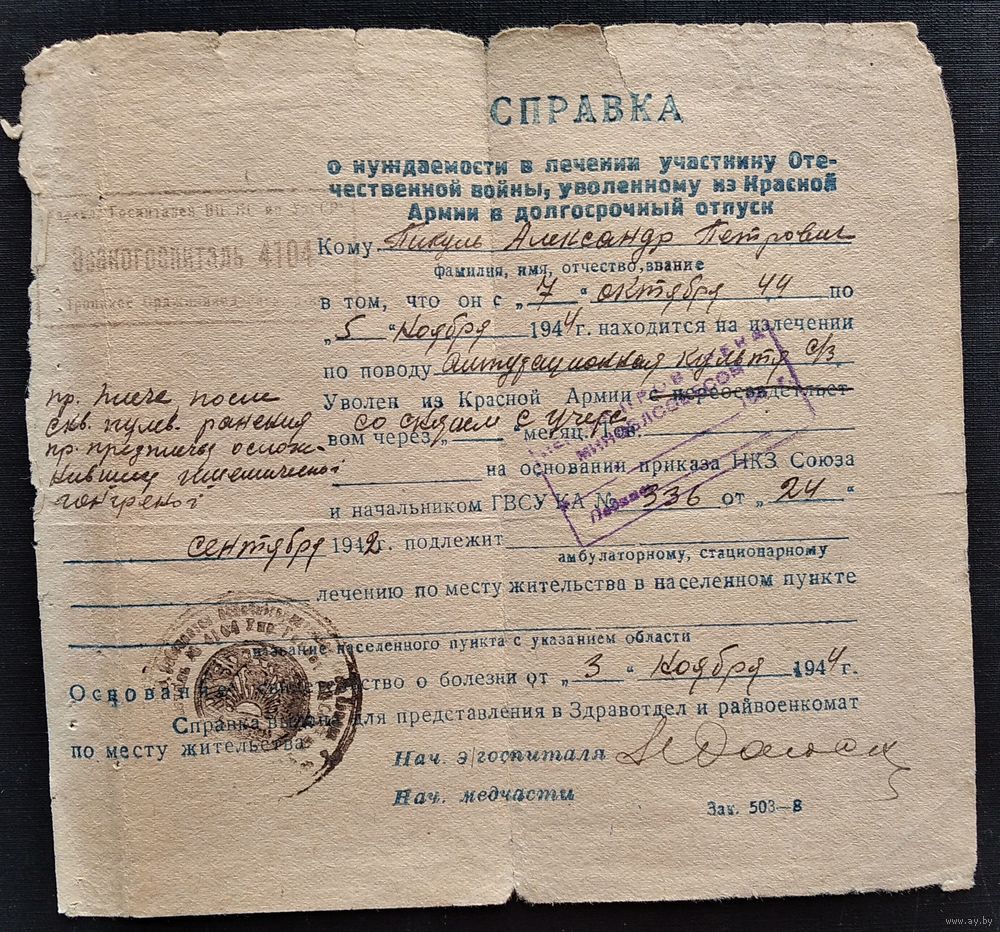 СПРАВКА
о нуждаемости в лечении участнику Оте-
чественной войны, уволенному из Красной
Армии в долгосрочный отпуск
Эвакогоспиталь 4104
Кому Пикуль Александр Петрович
фамилия, имя, отчество, звание
в том, что он с „7“ октября 44 по
„5“ Ноября 1944 г. находится на излечении
по поводу ампутационная культя с/з
пр. плече после
скв. пулев. ранения
пр. предплечья ослож-
нившиму
гангреной
Уволен из Красной Армии с переосвидетельст-
вом через „ “ месяц. Тов.
со снятием с учета
на основании приказа НКЗ Союза
и начальником ГВСУ КА № 336 от „24“
сентября 1942 г. подлежит
амбулаторному, стационарному
лечению по месту жительства в населенном пункте
название населенного пункта с указанием области
Основание: свидетельство о болезни от „3“ Ноября 1944 г.
Справка выдана для представления в Здравотдел и райвоенкомат
по месту жительства
Нач. э/госпиталя
Нач. медчасти
Зак. 503—8
www.ay.by